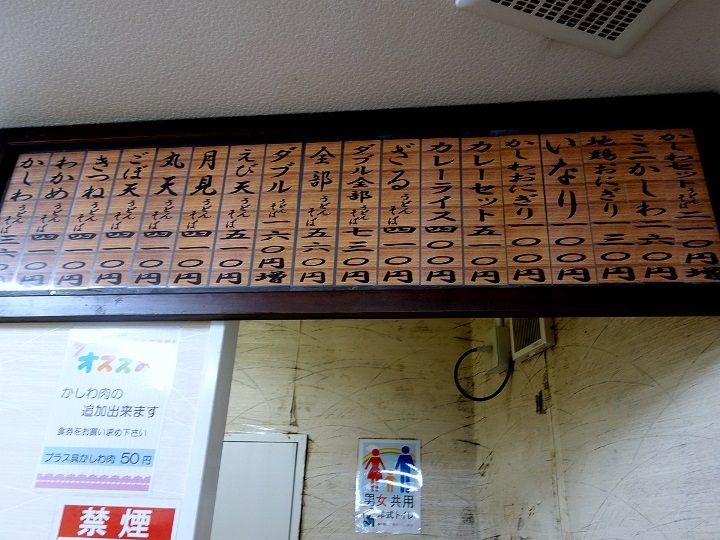 かしわセット うどんそば 二一〇円増
ミニかしわ 二六〇円
地鶏おにぎり 三一〇円
いなり 一〇〇円
かしわおにぎり 一〇〇円
カレーセット 五一〇円
カレーライス 四〇〇円
ざる うどんそば 四一〇円
ダブル全部 うどんそば 七三〇円
全部 うどんそば 五六〇円
ダブル うどんそば 一六〇円増
えび天 うどんそば 五一〇円
月見 うどんそば 四一〇円
丸天 うどんそば 四一〇円
ごぼ天 うどんそば 四一〇円
きつね うどんそば 四一〇円
わかめ うどんそば 四一〇円
かしわ うどんそば 三六〇円
オススメ
かしわ肉の
追加出来ます
食券をお買い求め下さい
プラス具かしわ肉 50円
禁煙
男女共用
洋式トイレ